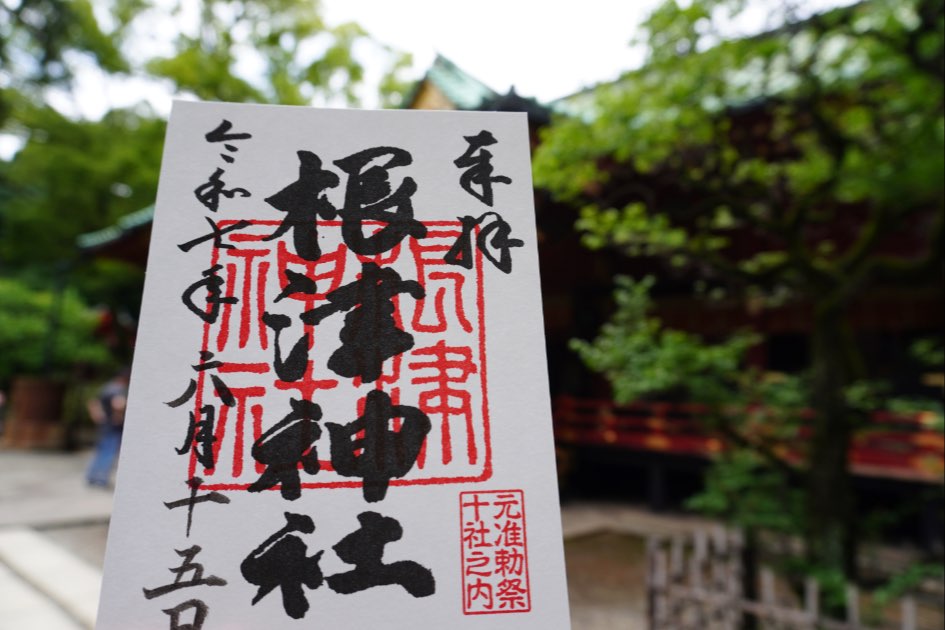 奉拝
根津神社
令和七年六月十五日
元准勅祭
十社之内